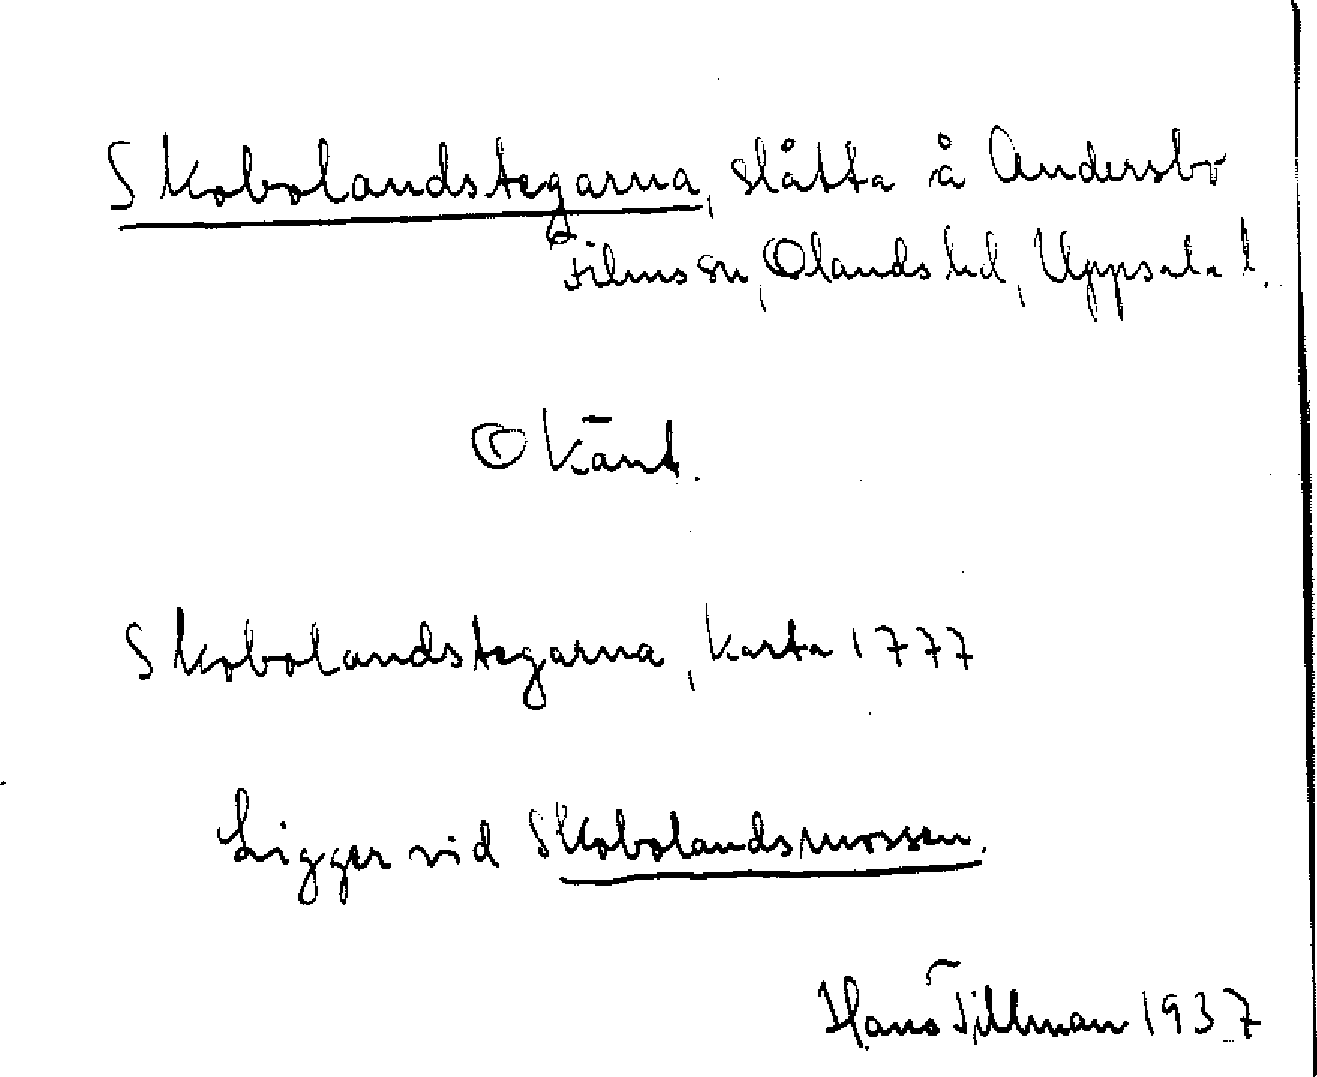 Skobolandstegarna, slåtta å Andersbo
Films sn, Olands hd, Uppsala l.
Okänt.
Skobolandstegarna, karta 1777
Ligger vid Skobolandsmossen.
Hans Tillman 1937